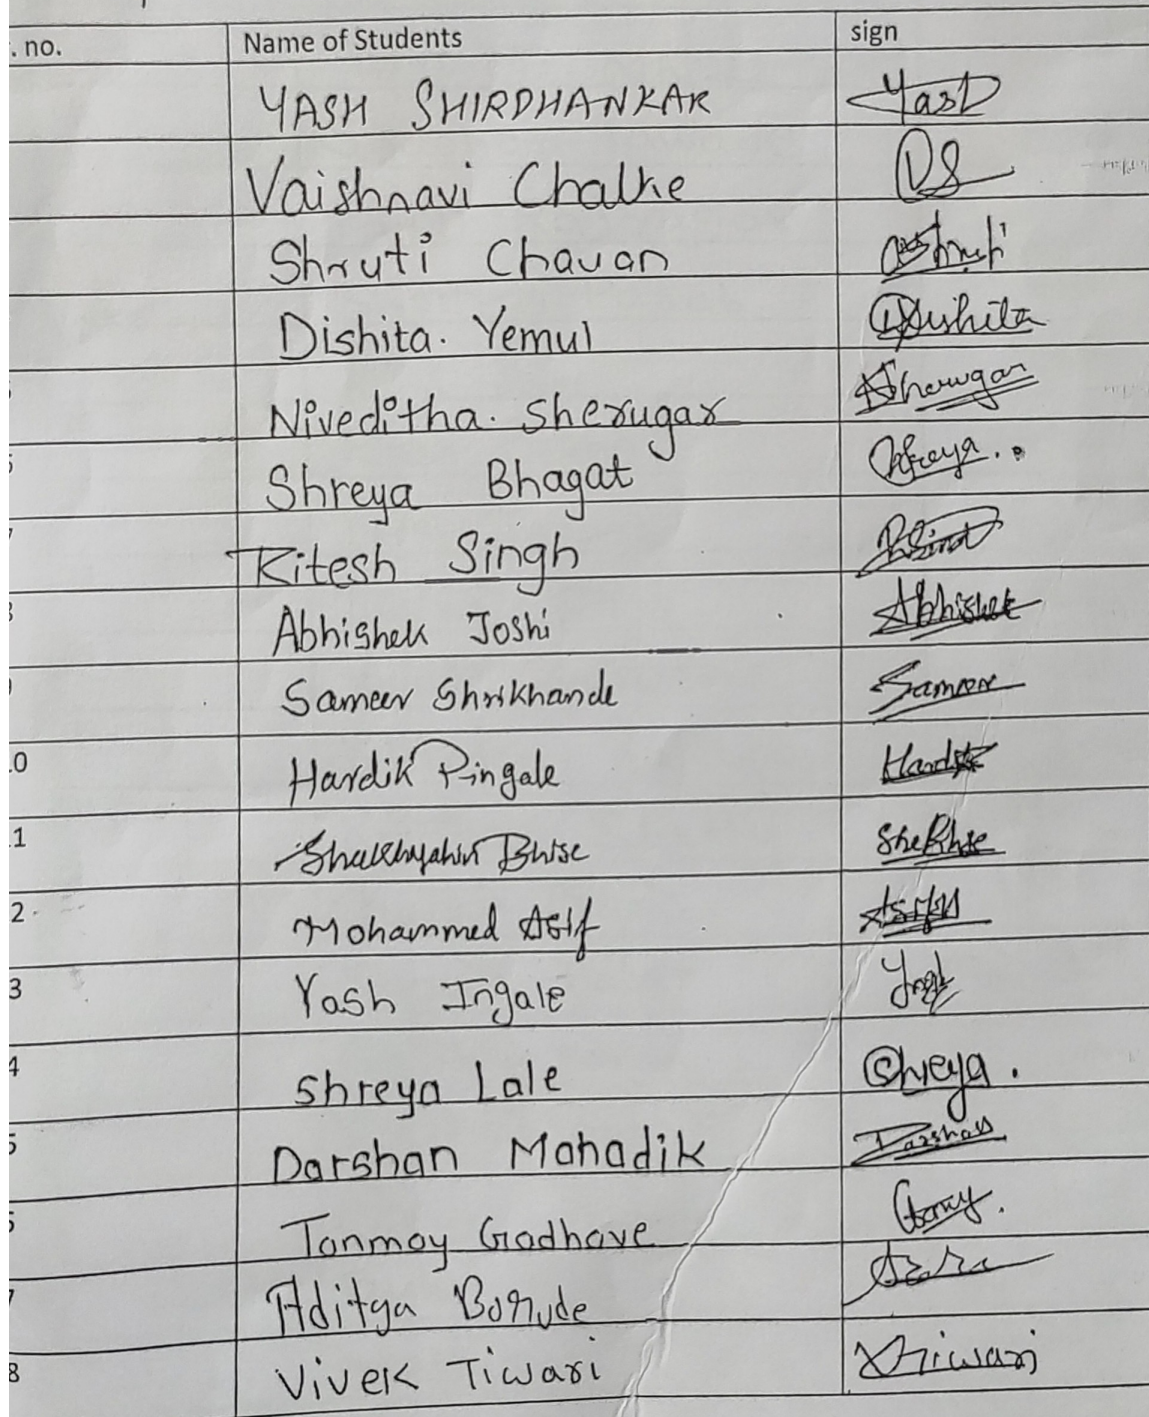 . no. Name of Students sign
YASH SHIRDHANKAR Yash
Vaishnavi Chalke
Shruti Chavan Shruti
Dishita. Yemul Dishita
Niveditha. Sherugar Sherugar
6 Shreya Bhagat Shreya..
7 Ritesh Singh
8 Abhishek Joshi Abhishek
9 Sameer Shrikhande Sameer
10 Hardik Pingale Hardik
1 Bhise
2 Mohammed Asif Asif
3 Yash Ingale
4 Shreya Lale Shreya.
5 Darshan Mahadik Darshan
6 Tanmay Gadhave
7 Aditya Borude
8 Vivek Tiwari Tiwari